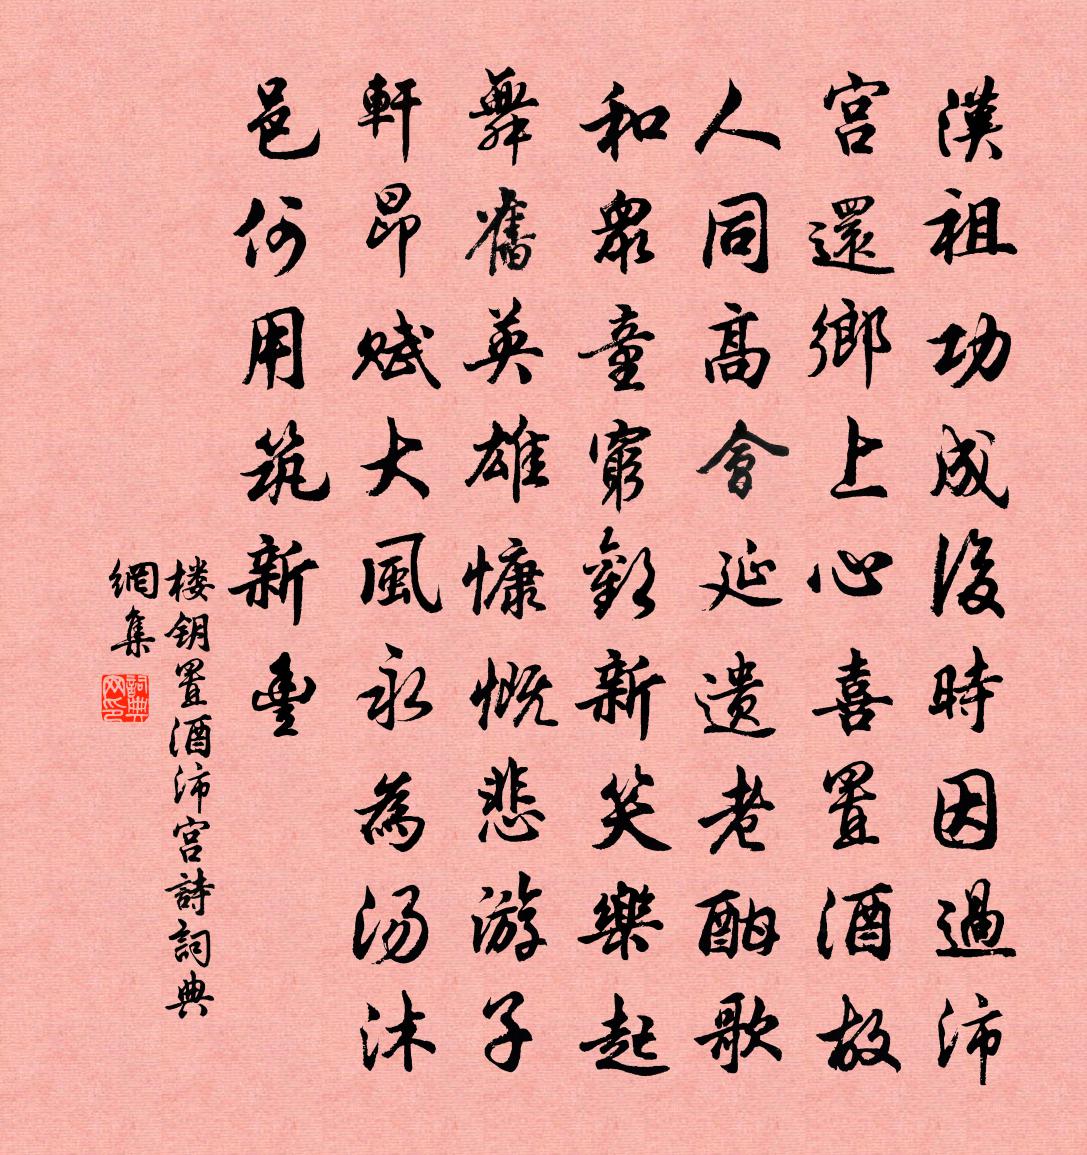 漢祖功成後時因過沛
宮還鄉上心喜置酒故
人同高會延遺老酣歌
和眾童窮歡新笑樂起
舞舊英雄慷慨悲游子
軒昂賦大風永為湯沐
邑何用筑新豐
楼钥置酒沛宮詩詞典
網集
詞典網印